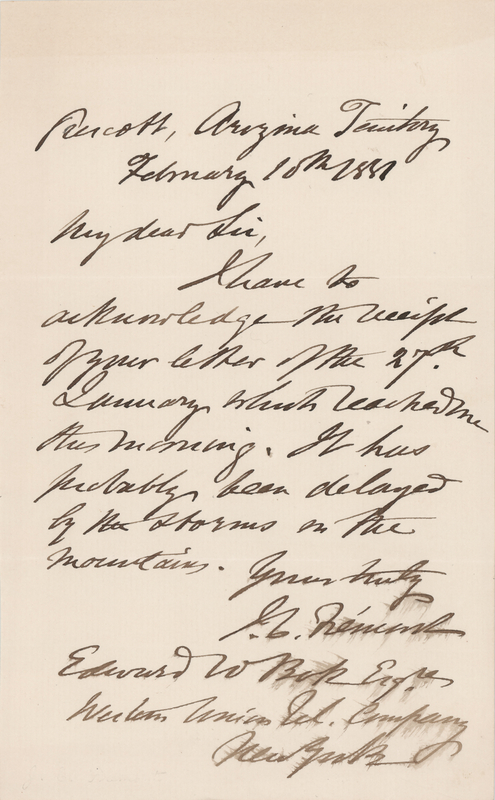 Prescott, Arizona Territory
February 10th 1881
My dear Sir,
I have to
acknowledge the receipt
of your letter of the 27th.
January which reached me
this morning. It has
probably been delayed
by the storms on the
mountains.
Yours truly
J. C. Frémont
Edward W Bok Esqre
Western Union Tel. Company
New York